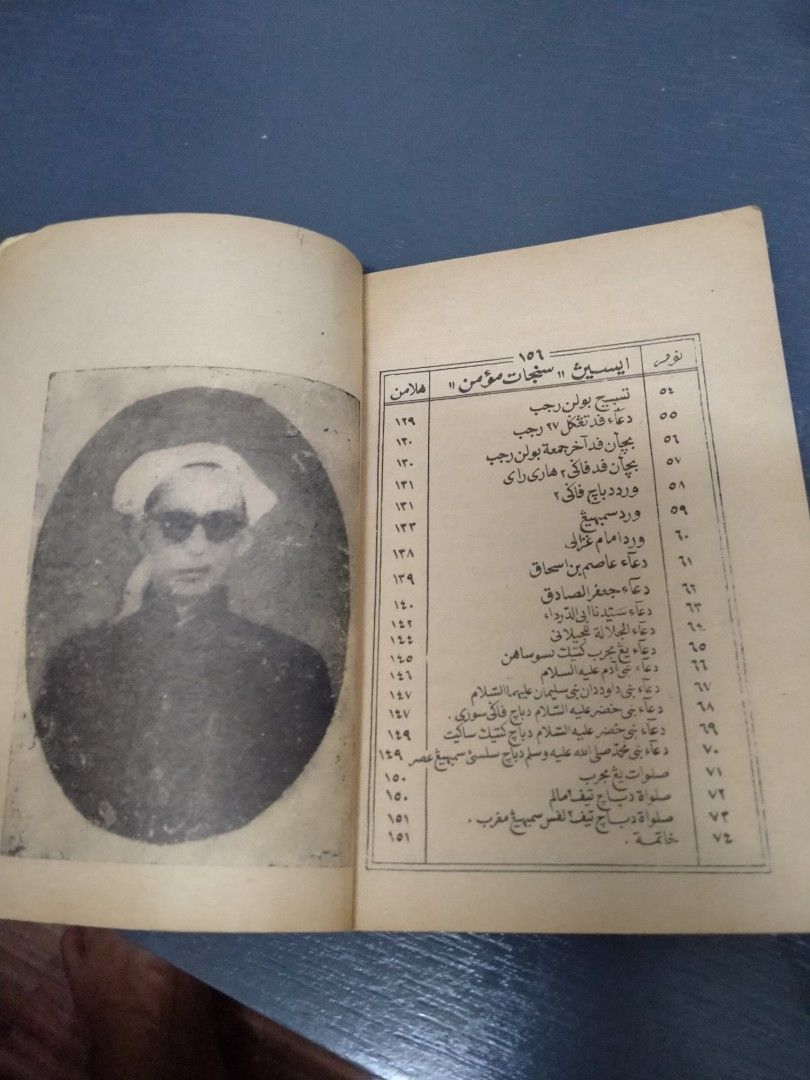 ١٥٦
نومر ايسيڽ ,, سنجات مؤمن ,, هلامن
٥٤ تسبيح بولن رجب ١٢٩
٥٥ دعاء ڤد تڠڬل ٢٧ رجب ١٣٠
٥٦ بچأن ڤد آخر جمعة بولن رجب ١٣٠
٥٧ بچأن ڤد ڤاڬي٢ هاري راي ١٣١
٥٨ ورد دباچ ڤاڬي٢ ١٣١
٥٩ ورد سمبهيڠ ١٣٣
٦٠ ورد امام غزالى ١٣٨
٦١ دعاء عاصم بن اسحاق ١٣٩
٦٢ دعاء جعفر الصادق ١٤٠
٦٣ دعاء سيدنا ابى الدرداء ١٤٢
٦٤ دعاء الجلالة للجيلانى ١٤٤
٦٥ دعاء يڠ مجرب كتيك سوساهن ١٤٥
٦٦ دعاء نبي آدم عليه السلام ١٤٦
٦٧ دعاء نبي داود دان نبي سليمان عليهما السلام ١٤٧
٦٨ دعاء نبي خضر عليه السلام دباچ ڤاڬي سوري . ١٤٧
٦٩ دعاء نبي خضر عليه السلام دباچ كتيك ساكيت ١٤٩
٧٠ دعاء نبي محمد صلى الله عليه وسلم دباچ سلسى سمبهيڠ عصر ١٤٩
٧١ صلوات يڠ مجرب ١٥٠
٧٢ صلواة دباچ تيڤ٢ مالم ١٥٠
٧٣ صلواة دباچ تيڤ٢ لڤس سمبهيڠ مغرب . ١٥١
٧٤ خاتمة . ١٥١